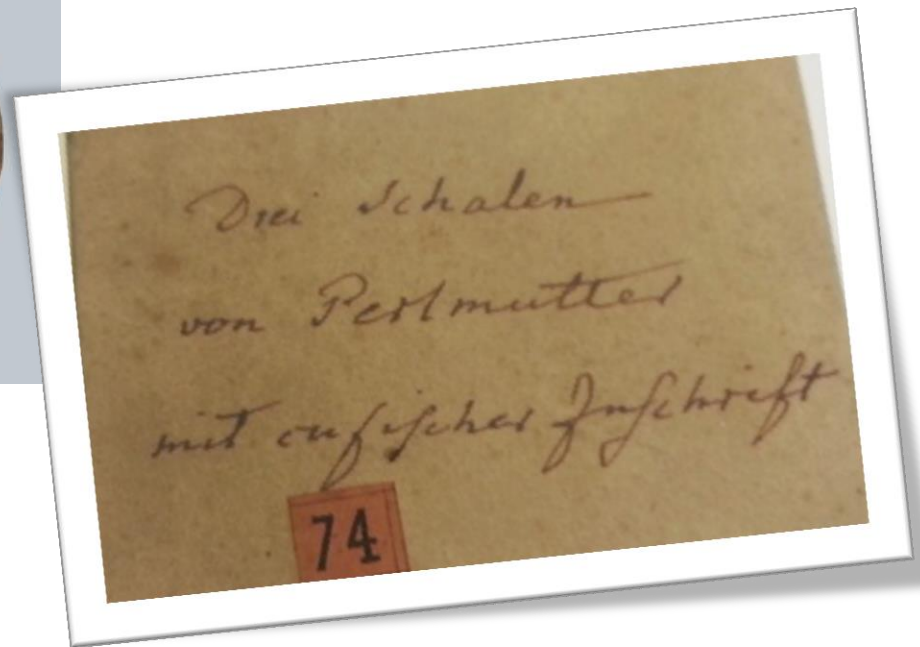 Drei Schalen
von Perlmutter
mit cufischer Inschrift
74